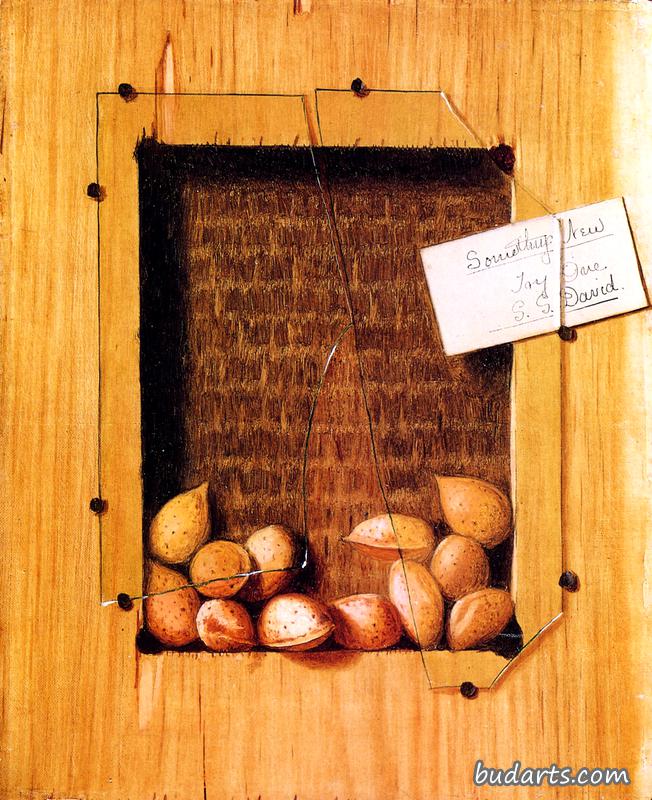 Something New
Try One
S. S. David.
budarts.com